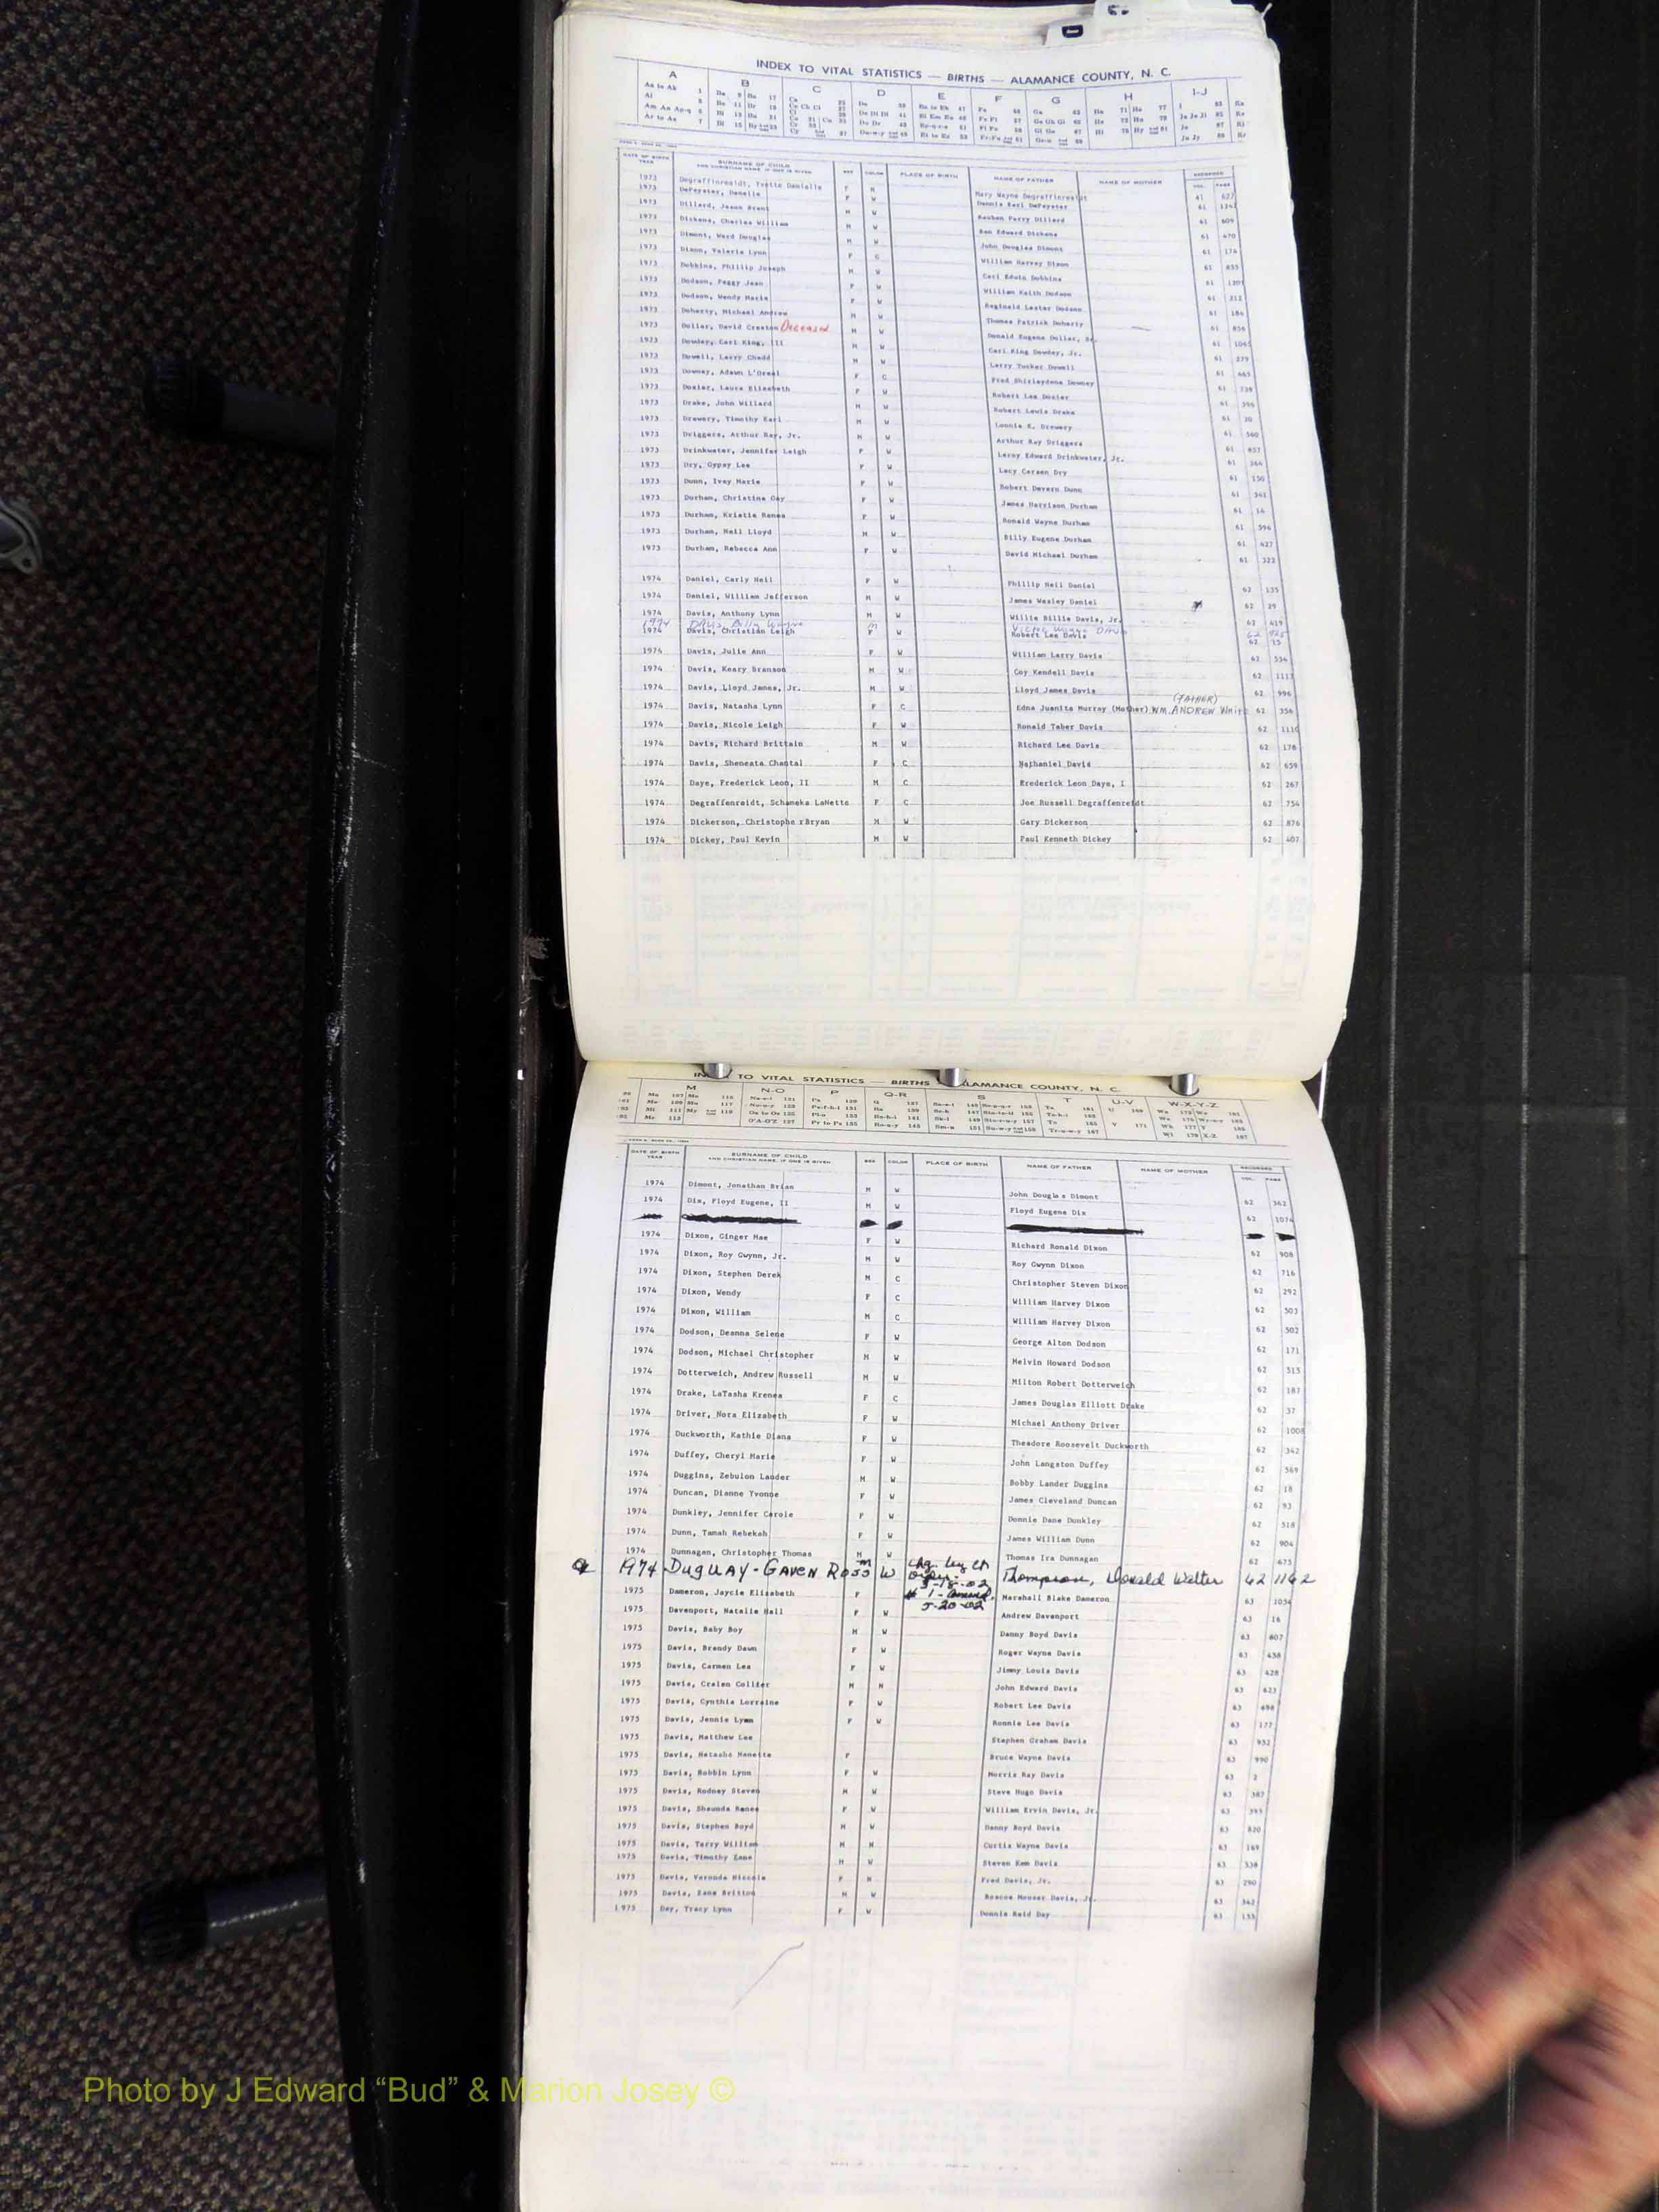 D
INDEX TO VITAL STATISTICS — BIRTHS — ALAMANCE COUNTY, N. C.
A B C D E F G H I-J
DATE OF BIRTH YEAR SURNAME OF CHILD AND CHRISTIAN NAME, IF ONE IS GIVEN SEX COLOR PLACE OF BIRTH NAME OF FATHER NAME OF MOTHER RECORDED VOL. PAGE
1973 Degraffinreaidt, Yvette Danielle F N Mary Wayne Degraffinreaidt 627
1973 DePeyster, Danelle F W Dennis Karl DePeyster 61
1973 Dillard, Jason Brent M W Reuben Parry Dillard 61 609
1973 Dickens, Charles William M W Ben Edward Dickens 61 470
1973 Dimont, Ward Douglas M W John Douglas Dimont 61 174
1973 Dixon, Valerie Lynn F C William Harvey Dixon 61 855
1973 Dobbins, Phillip Joseph M W Carl Edwin Dobbins 61
1973 Dodson, Peggy Jean F W William Keith Dodson 61 212
1973 Dodson, Wendy Marie F W Reginald Lester Dodson 61 184
1973 Doherty, Michael Andrew M W Thomas Patrick Doherty 61 856
1973 Dollar, David Creston Deceased M W Donald Eugene Dollar, Sr. 61 1065
1973 Dowdey, Carl King, III M W Carl King Dowdey, Jr. 61 279
1973 Dowell, Larry Chadd M W Larry Tucker Dowell 61 465
1973 Downey, Adawn L'Oreal F C Fred Shirleydene Downey 61 728
1973 Dozier, Laura Elizabeth F W Robert Lee Dozier 61 596
1973 Drake, John Willard M W Robert Lewis Drake 61 20
1973 Drewery, Timothy Earl M W Lonnie E. Drewery 61 560
1973 Driggers, Arthur Ray, Jr. M W Arthur Ray Driggers 61 857
1973 Drinkwater, Jennifer Leigh F W Leroy Edward Drinkwater, Jr. 61 364
1973 Dry, Gypsy Lee F W Lacy Carsen Dry 61 150
1973 Dunn, Ivey Marie F W Robert Devern Dunn 61 341
1973 Durham, Christina Gay F W James Harrison Durham 61 14
1973 Durham, Kristie Renea F W Ronald Wayne Durham 61 594
1973 Durham, Neil Lloyd M W Billy Eugene Durham 61 427
1973 Durham, Rebecca Ann F W David Michael Durham 61 322
1974 Daniel, Carly Neil F W Phillip Neil Daniel 62 135
1974 Daniel, William Jefferson M W James Wesley Daniel 62 29
1974 Davis, Anthony Lynn M W Willie Billie Davis, Jr. 62 419
1974 Davis, Billy Wayne m Victor Wayne Davis 62 925
1974 Davis, Christian Leigh F W Robert Lee Davis 62 15
1974 Davis, Julie Ann F W William Larry Davis 62 534
1974 Davis, Keary Branson M W Coy Kendell Davis 62 1113
1974 Davis, Lloyd James, Jr. M W Lloyd James Davis 62 996
(FATHER)
1974 Davis, Natasha Lynn F C Edna Juanita Murray (Mother) WM. ANDREW White 62 356
1974 Davis, Nicole Leigh F W Ronald Taber Davis 62 1110
1974 Davis, Richard Brittain M W Richard Lee Davis 62 178
1974 Davis, Sheneata Chantal F C Nathaniel David 62 659
1974 Daye, Frederick Leon, II M C Frederick Leon Daye, I 62 267
1974 Degraffenreidt, Schameka LaNette F C Joe Russell Degraffenreidt 62 754
1974 Dickerson, Christopher Bryan M W Gary Dickerson 62 876
1974 Dickey, Paul Kevin M W Paul Kenneth Dickey 62 407
TO VITAL STATISTICS — BIRTHS ALAMANCE COUNTY, N. C.
M N-O P Q-R S T U-V W-X-Y-Z
DATE OF BIRTH YEAR SURNAME OF CHILD AND CHRISTIAN NAME, IF ONE IS GIVEN SEX COLOR PLACE OF BIRTH NAME OF FATHER NAME OF MOTHER RECORDED VOL. PAGE
1974 Dimont, Jonathan Brian M W John Douglas Dimont 62 362
1974 Dix, Floyd Eugene, II M W Floyd Eugene Dix 62 1074
1974 Dixon, Ginger Mae F W Richard Ronald Dixon 62 908
1974 Dixon, Roy Gwynn, Jr. M W Roy Gwynn Dixon 62 716
1974 Dixon, Stephen Derek M C Christopher Steven Dixon 62 292
1974 Dixon, Wendy F C William Harvey Dixon 62 503
1974 Dixon, William M C William Harvey Dixon 62 502
1974 Dodson, Deanna Selene F W George Alton Dodson 62 171
1974 Dodson, Michael Christopher M W Melvin Howard Dodson 62 515
1974 Dotterweich, Andrew Russell M W Milton Robert Dotterweich 62 187
1974 Drake, LaTasha Krenea F C James Douglas Elliott Drake 62 37
1974 Driver, Nora Elizabeth F W Michael Anthony Driver 62 1008
1974 Duckworth, Kathie Diana F W Theadore Roosevelt Duckworth 62 342
1974 Duffey, Cheryl Marie F W John Langston Duffey 62 569
1974 Duggins, Zebulon Lander M W Bobby Lander Duggins 62 18
1974 Duncan, Dianne Yvonne F W James Cleveland Duncan 62 93
1974 Dunkley, Jennifer Carole F W Donnie Dane Dunkley 62 518
1974 Dunn, Tamah Rebekah F W James William Dunn 62 904
1974 Dunnagan, Christopher Thomas M W Thomas Ira Dunnagan 62 675
1974 Duguay-Gaven Ross m W Chg. by Ct order 3-18-02 # 1-Amend. 5-20-02 Thompson, Donald Walter 62 1162
1975 Dameron, Jaycie Elizabeth F Marshall Blake Dameron 63 1034
1975 Davenport, Natalie Hall F W Andrew Davenport 63 16
1975 Davis, Baby Boy M W Danny Boyd Davis 63 807
1975 Davis, Brandy Dawn F W Roger Wayne Davis 63 438
1975 Davis, Carmen Lea F W Jimmy Louis Davis 63 428
1975 Davis, Cralen Collier M N John Edward Davis 63 625
1975 Davis, Cynthia Lorraine F W Robert Lee Davis 63 498
1975 Davis, Jennie Lynn F W Ronnie Lee Davis 63 177
1975 Davis, Matthew Lee Stephen Graham Davis 63 932
1975 Davis, Natasha Nanette F Bruce Wayne Davis 63 990
1975 Davis, Robbin Lynn F W Morris Ray Davis 63 2
1975 Davis, Rodney Steven M W Steve Hugo Davis 63 387
1975 Davis, Shaunda Renee F W William Ervin Davis, Jr. 63 395
1975 Davis, Stephen Boyd M W Danny Boyd Davis 63 820
1975 Davis, Terry William M N Curtis Wayne Davis 63 169
1975 Davis, Timothy Zane M W Steven Kem Davis 63 338
1975 Davis, Veronda Niccole F N Fred Davis, Jr. 63 290
1975 Davis, Zane Britton M W Roscoe Mouser Davis, Jr. 63 342
1975 Day, Tracy Lynn F W Donnie Reid Day 63 155
Photo by J Edward “Bud” & Marion Josey ©